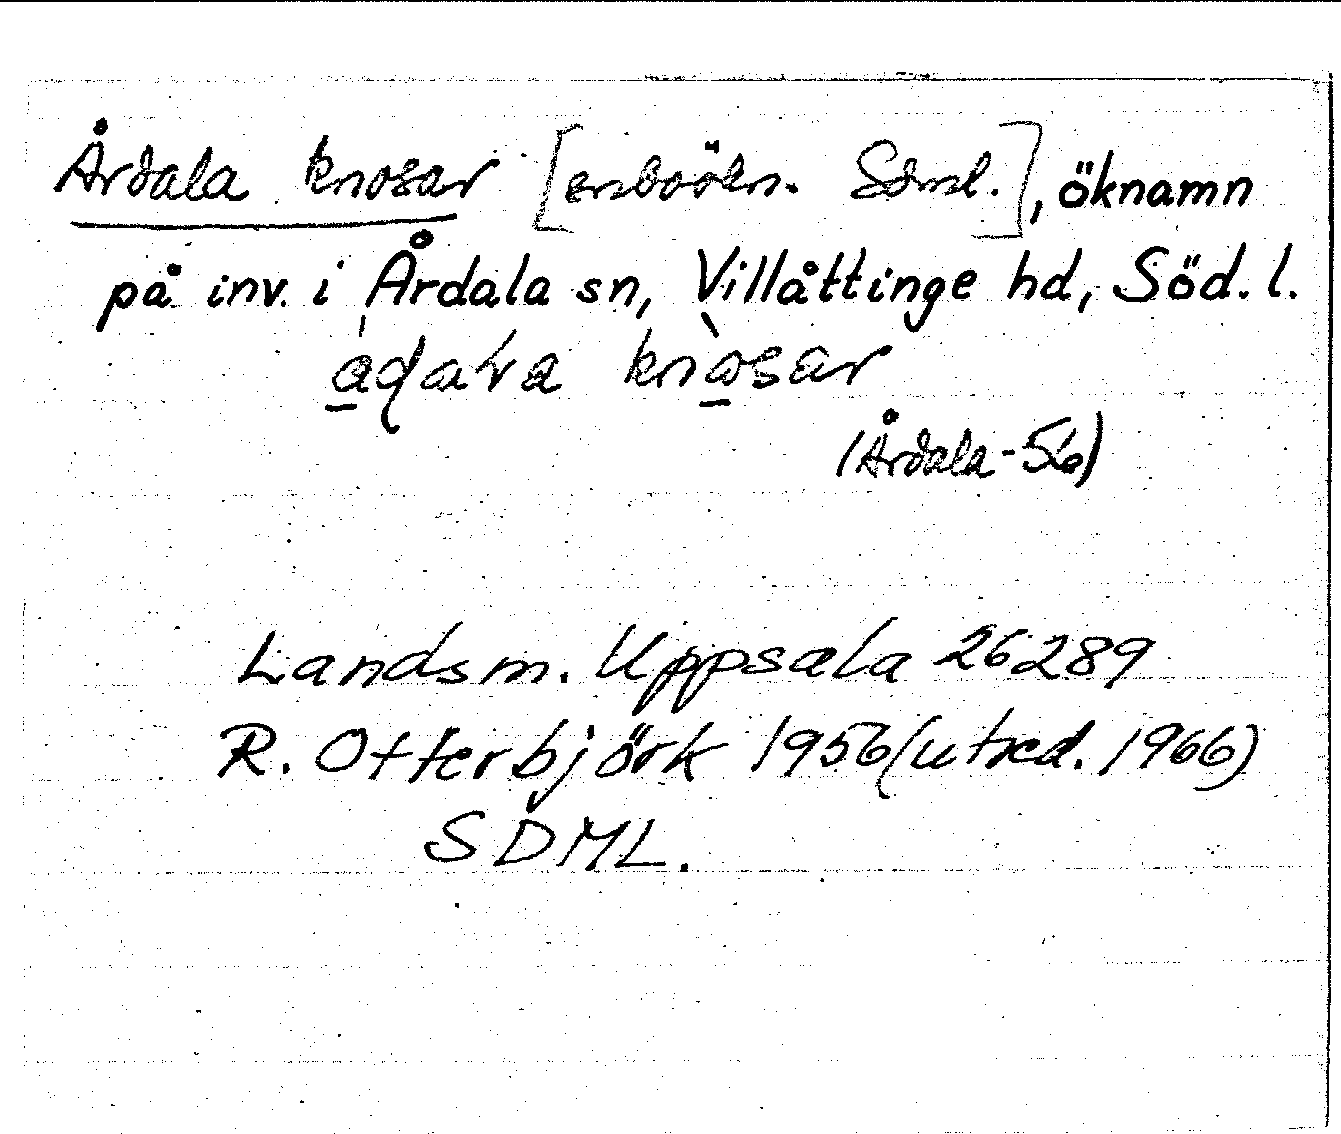 Årdala knosar [inboökn. Sdml.], öknamn
på inv. i Årdala sn, Villåttinge hd, Söd. l.
knosar
(Årdala-56)
Landsm. Uppsala 26289
R. Otterbjörk 1956 (utred. 1966)
SDML.